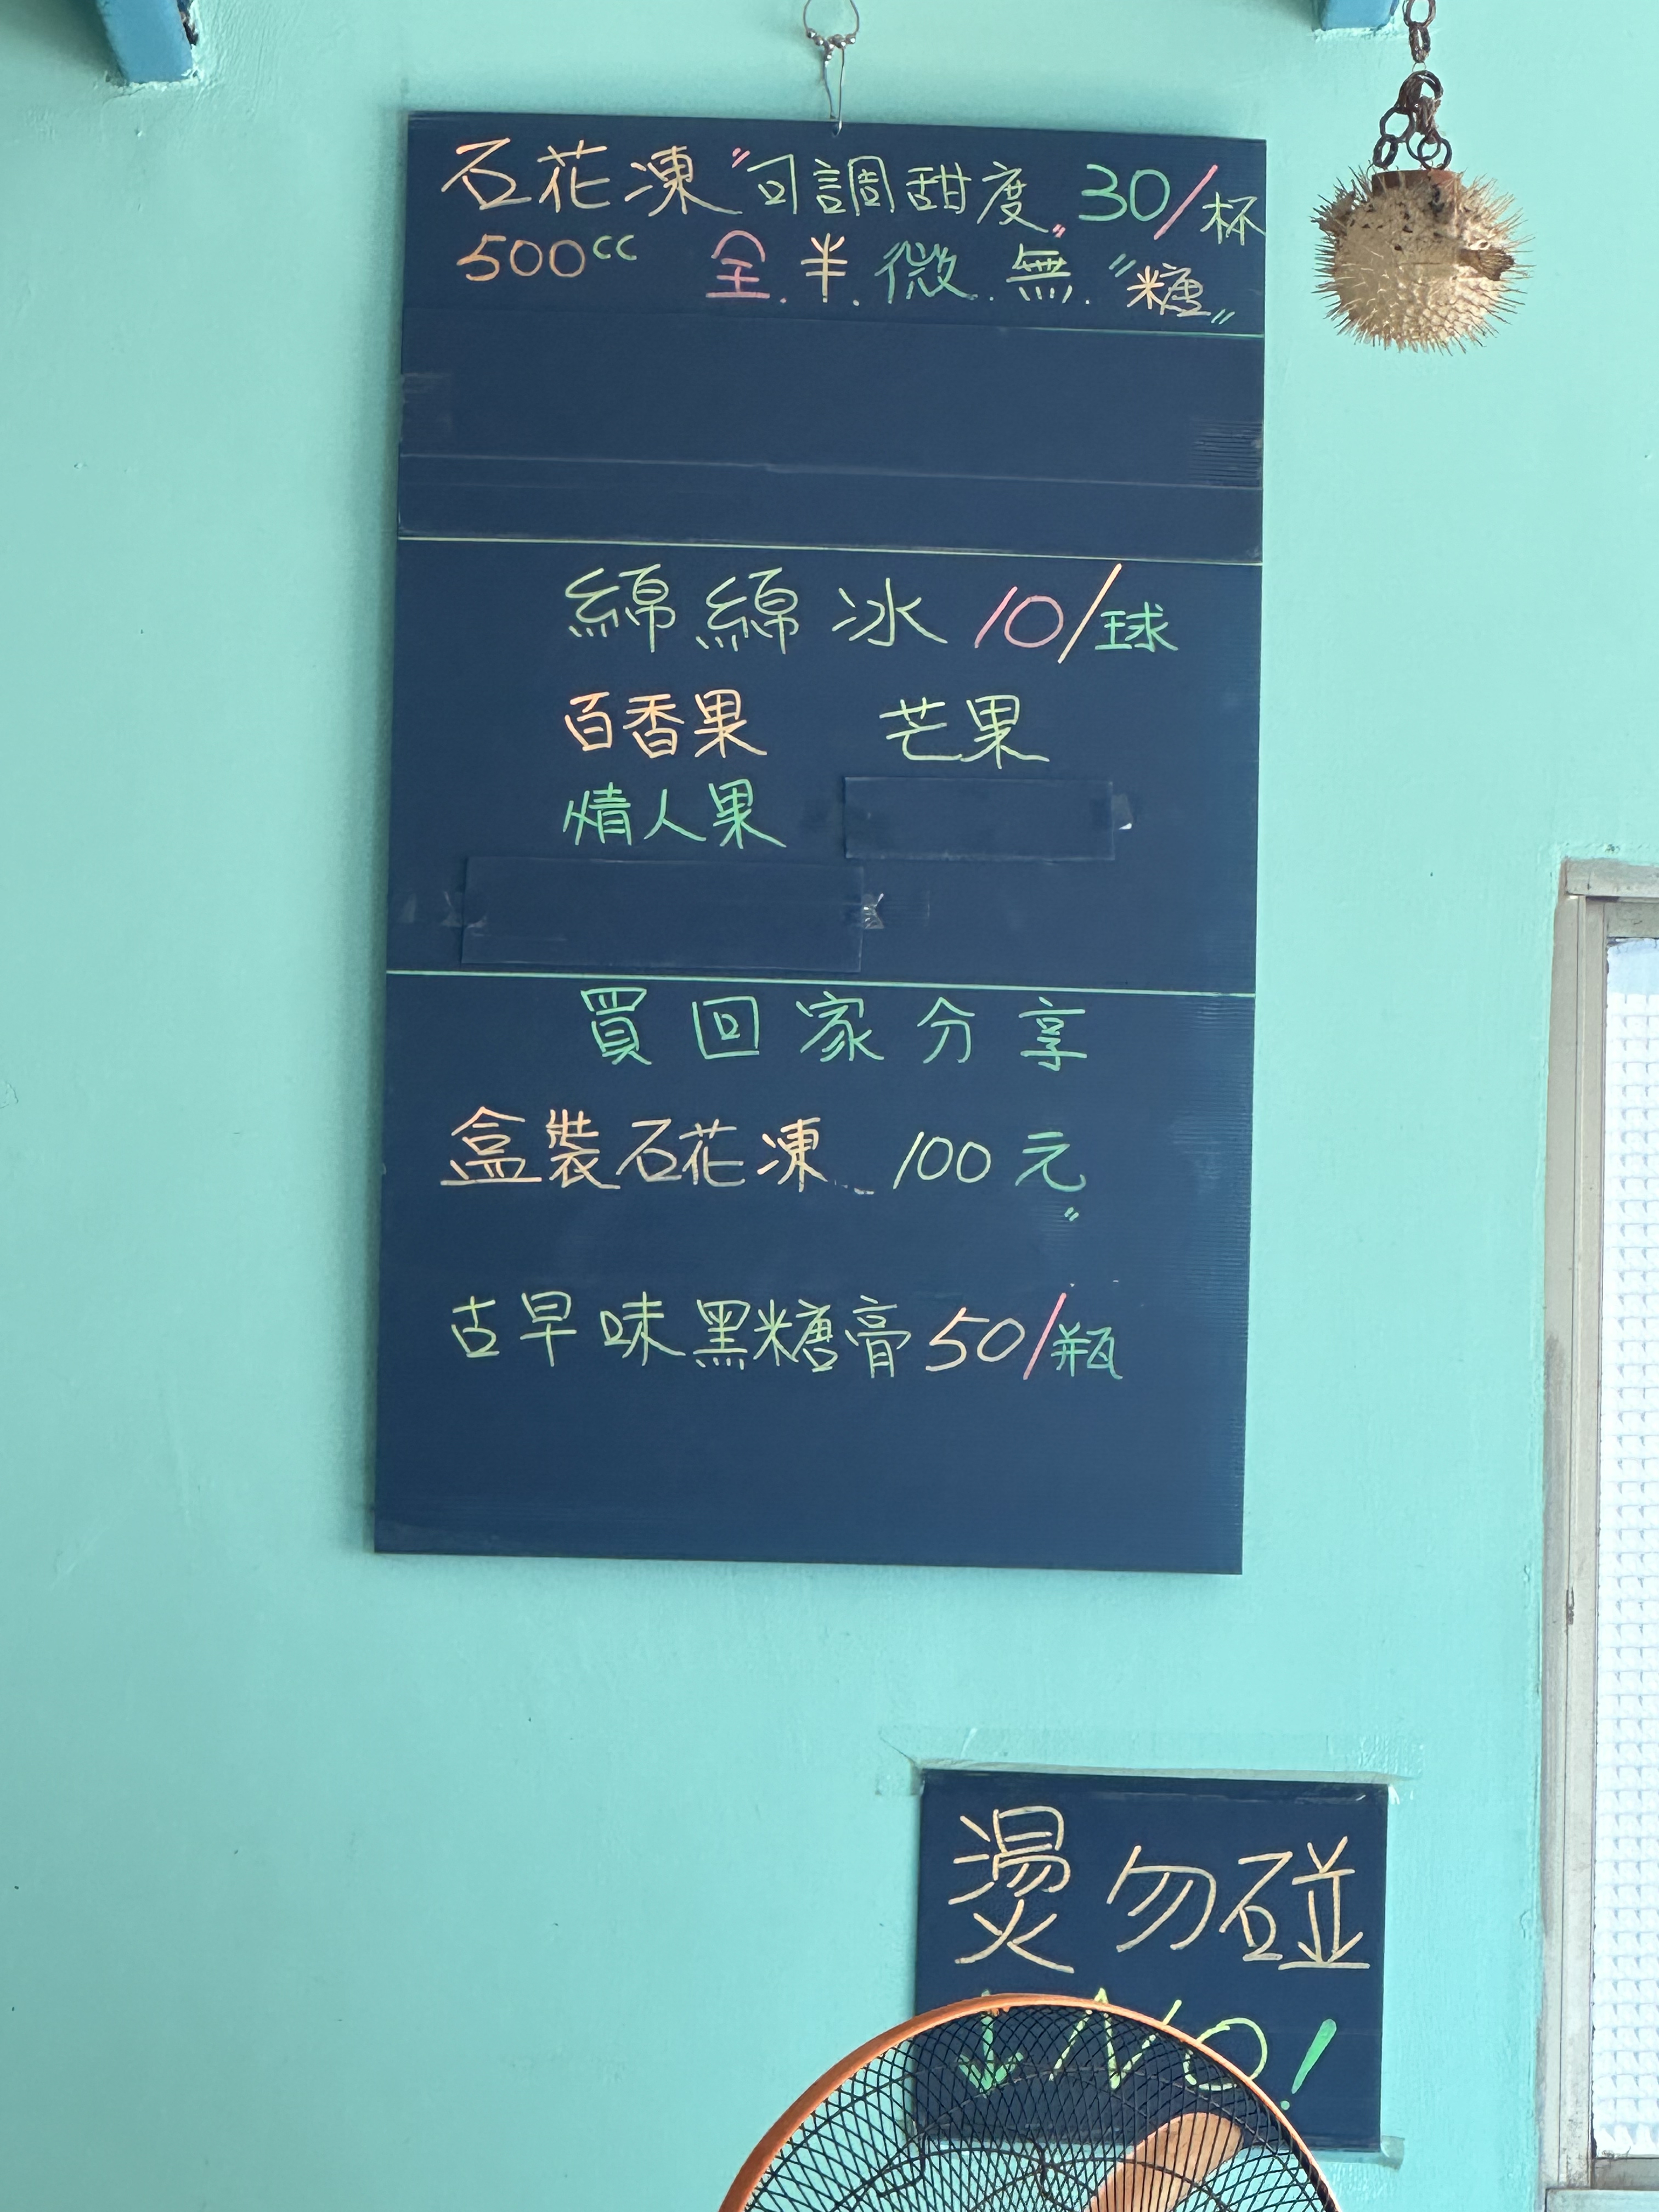 石花凍"可調甜度"30/杯
500cc 全.半.微.無."糖"
綿綿冰10/球
百香果 芒果
情人果
買回家分享
盒裝石花凍 100元"
古早味黑糖膏50/瓶
燙勿碰
↓NO!